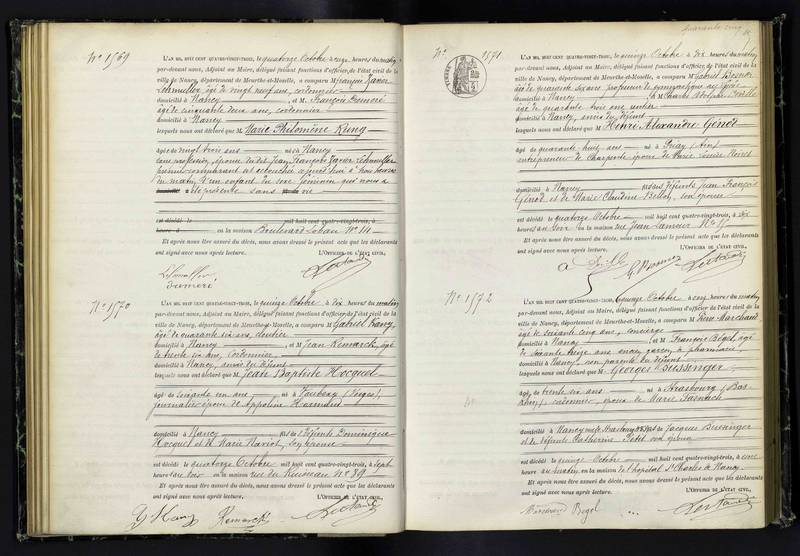 N° 1569
L'AN MIL HUIT CENT QUATRE-VINGT-TROIS, le quatorze Octobre à onze heures du matin,
par-devant nous, Adjoint au Maire, délégué faisant fonctions d'officier de l'état civil de la
ville de Nancy, département de Meurthe-et-Moselle, a comparu M François Xavier
âgé de vingt neuf ans, cordonnier
domicilié à Nancy, et M François
âgé de cinquante deux ans, cordonnier
domicilié à Nancy
lesquels nous ont déclaré que Marie Philomène Kung
âgée de vingt trois ans née à Nancy
sans profession, épouse du dit Jean François Xavier
premier comparant est accouchée aujourd'hui à trois heures
du matin d'un enfant du sexe féminin qui nous a
été présenté sans vie
est décédé le mil huit cent quatre-vingt-trois, à
heure à en la maison Boulevard Lobau N° 14
Et après nous être assuré du décès, nous avons dressé le présent acte que les déclarants
ont signé avec nous après lecture. L'OFFICIER DE L'ÉTAT CIVIL,
N° 1570
L'AN MIL HUIT CENT QUATRE-VINGT-TROIS, le quinze Octobre à dix heures du matin
par-devant nous, Adjoint au Maire, délégué faisant fonctions d'officier de l'état civil de la
ville de Nancy, département de Meurthe-et-Moselle, a comparu M Gabriel
âgé de quarante six ans,
domicilié à Nancy, et M Jean Remarck, âgé
de trente six ans, cordonnier
domicilié à Nancy, amis du défunt
lesquels nous ont déclaré que M Jean Baptiste Hocquel
âgé de soixante un ans né à (Vosges),
journalier époux de Appoline
domicilié à Nancy fils de défunts Dominique
Hocquel et de Marie, son épouse
est décédé le quatorze Octobre mil huit cent quatre-vingt-trois, à sept
heures au soir en la maison rue du Ruisseau N° 89
Et après nous être assuré du décès, nous avons dressé le présent acte que les déclarants
ont signé avec nous après lecture. L'OFFICIER DE L'ÉTAT CIVIL,
Remarck
quarante cinq
N° 1571
le quinze Octobre à dix heures du matin
par-devant nous, Adjoint au Maire, délégué faisant fonctions d'officier de l'état civil de la
ville de Nancy, département de Meurthe-et-Moselle, a comparu M Gabriel
âgé de quarante six ans professeur de gymnastique au lycée
domicilié à Nancy, et M Charles Adolphe
âgé de quarante trois ans
domicilié à Nancy, amis du défunt
lesquels nous ont déclaré que M Henri Alexandre Génod
âgé de quarante huit ans né à (Ain)
entrepreneur de Charpente époux de Marie Louise
domicilié à Nancy fils de défunts Jean François
Génod et de Marie Claudine, son épouse
est décédé le quatorze Octobre mil huit cent quatre-vingt-trois, à dix
heures au soir en la maison rue Jean Lamour N° 15
Et après nous être assuré du décès, nous avons dressé le présent acte que les déclarants
ont signé avec nous après lecture. L'OFFICIER DE L'ÉTAT CIVIL,
N° 1572
L'AN MIL HUIT CENT QUATRE-VINGT-TROIS, le quinze Octobre à onze heures du matin
par-devant nous, Adjoint au Maire, délégué faisant fonctions d'officier de l'état civil de la
ville de Nancy, département de Meurthe-et-Moselle, a comparu M Pierre Marchand
âgé de soixante cinq ans, concierge
domicilié à Nancy, et M François Bégel, âgé
de soixante treize ans garçon de pharmacie,
domicilié à Nancy, non parents du défunt
lesquels nous ont déclaré que M Georges Bussinger
âgé de trente six ans né à Strasbourg (Bas
Rhin) cordonnier, époux de Marie
domicilié à Nancy fils de Jacques Bussinger
et de défunte Catherine Petit son épouse
est décédé le quinze Octobre mil huit cent quatre-vingt-trois, à
heure au matin, en la maison de l'hôpital St Charles à Nancy
Et après nous être assuré du décès, nous avons dressé le présent acte que les déclarants
ont signé avec nous après lecture. L'OFFICIER DE L'ÉTAT CIVIL,
Marchand Bégel